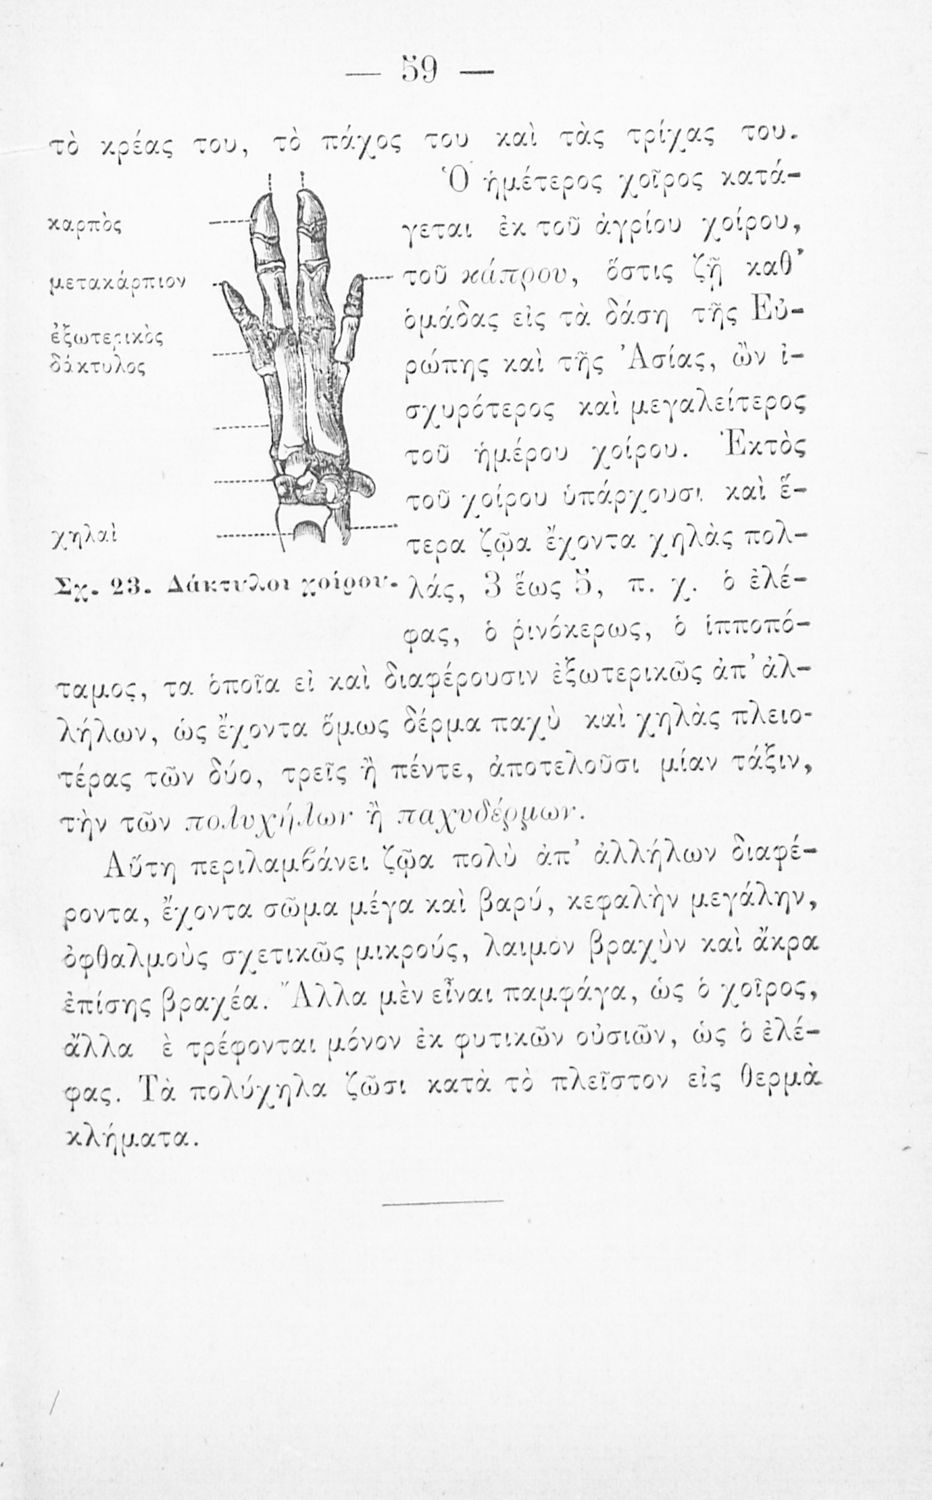 — 59 —
τὸ κρέας του, τὸ πάχος του καὶ τὰς τρίχας του.
Ὁ ἡμέτερος χοῖρος κατά-
γεται ἐκ τοῦ ἀγρίου χοίρου,
τοῦ κάπρου, ὅστις ζῇ καθ'
ὁμάδας εἰς τὰ δάση τῆς Εὐ-
ρώπης καὶ τῆς Ἀσίας, ὢν ἰ-
σχυρότερος καὶ μεγαλείτερος
τοῦ ἡμέρου χοίρου. Ἐκτὸς
τοῦ χοίρου ὑπάρχουσι καὶ ἕ-
τερα ζῷα ἔχοντα χηλὰς πολ-
λάς, 3 ἕως 5, π. χ. ὁ ἐλέ-
φας, ὁ ῥινόκερως, ὁ ἱπποπό-
καρπὸς
μετακάρπιον
ἐξωτερικὸς
δάκτυλος
χηλαὶ
Σχ. 23. Δάκτυλοι χοίρου.
ταμος, τα ὁποῖα εἰ καὶ διαφέρουσιν ἐξωτερικῶς ἀπ' ἀλ-
λήλων, ὡς ἔχοντα ὅμως δέρμα παχὺ καὶ χηλὰς πλειο-
τέρας τῶν δύο, τρεῖς ἢ πέντε, ἀποτελοῦσι μίαν τάξιν,
τὴν τῶν πολυχήλων ἢ παχυδέρμων.
Αὕτη περιλαμβάνει ζῷα πολὺ ἀπ' ἀλλήλων διαφέ-
ροντα, ἔχοντα σῶμα μέγα καὶ βαρύ, κεφαλὴν μεγάλην,
ὀφθαλμοὺς σχετικῶς μικρούς, λαιμὸν βραχὺν καὶ ἄκρα
ἐπίσης βραχέα. Ἄλλα μὲν εἶναι παμφάγα, ὡς ὁ χοῖρος,
ἄλλα ὲ τρέφονται μόνον ἐκ φυτικῶν οὐσιῶν, ὡς ὁ ἐλέ-
φας. Τὰ πολύχηλα ζῶσι κατὰ τὸ πλεῖστον εἰς θερμὰ
κλήματα.